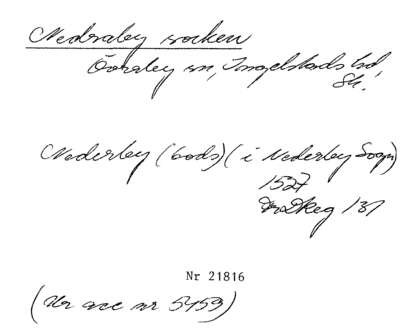 Nedraby socken
Övraby sn, Ingelstads hd,
Sk.
Nederby (bods) (i Nederby Sogn)
1527
Reg 137
Nr 21816
(Ur acc nr 5459)